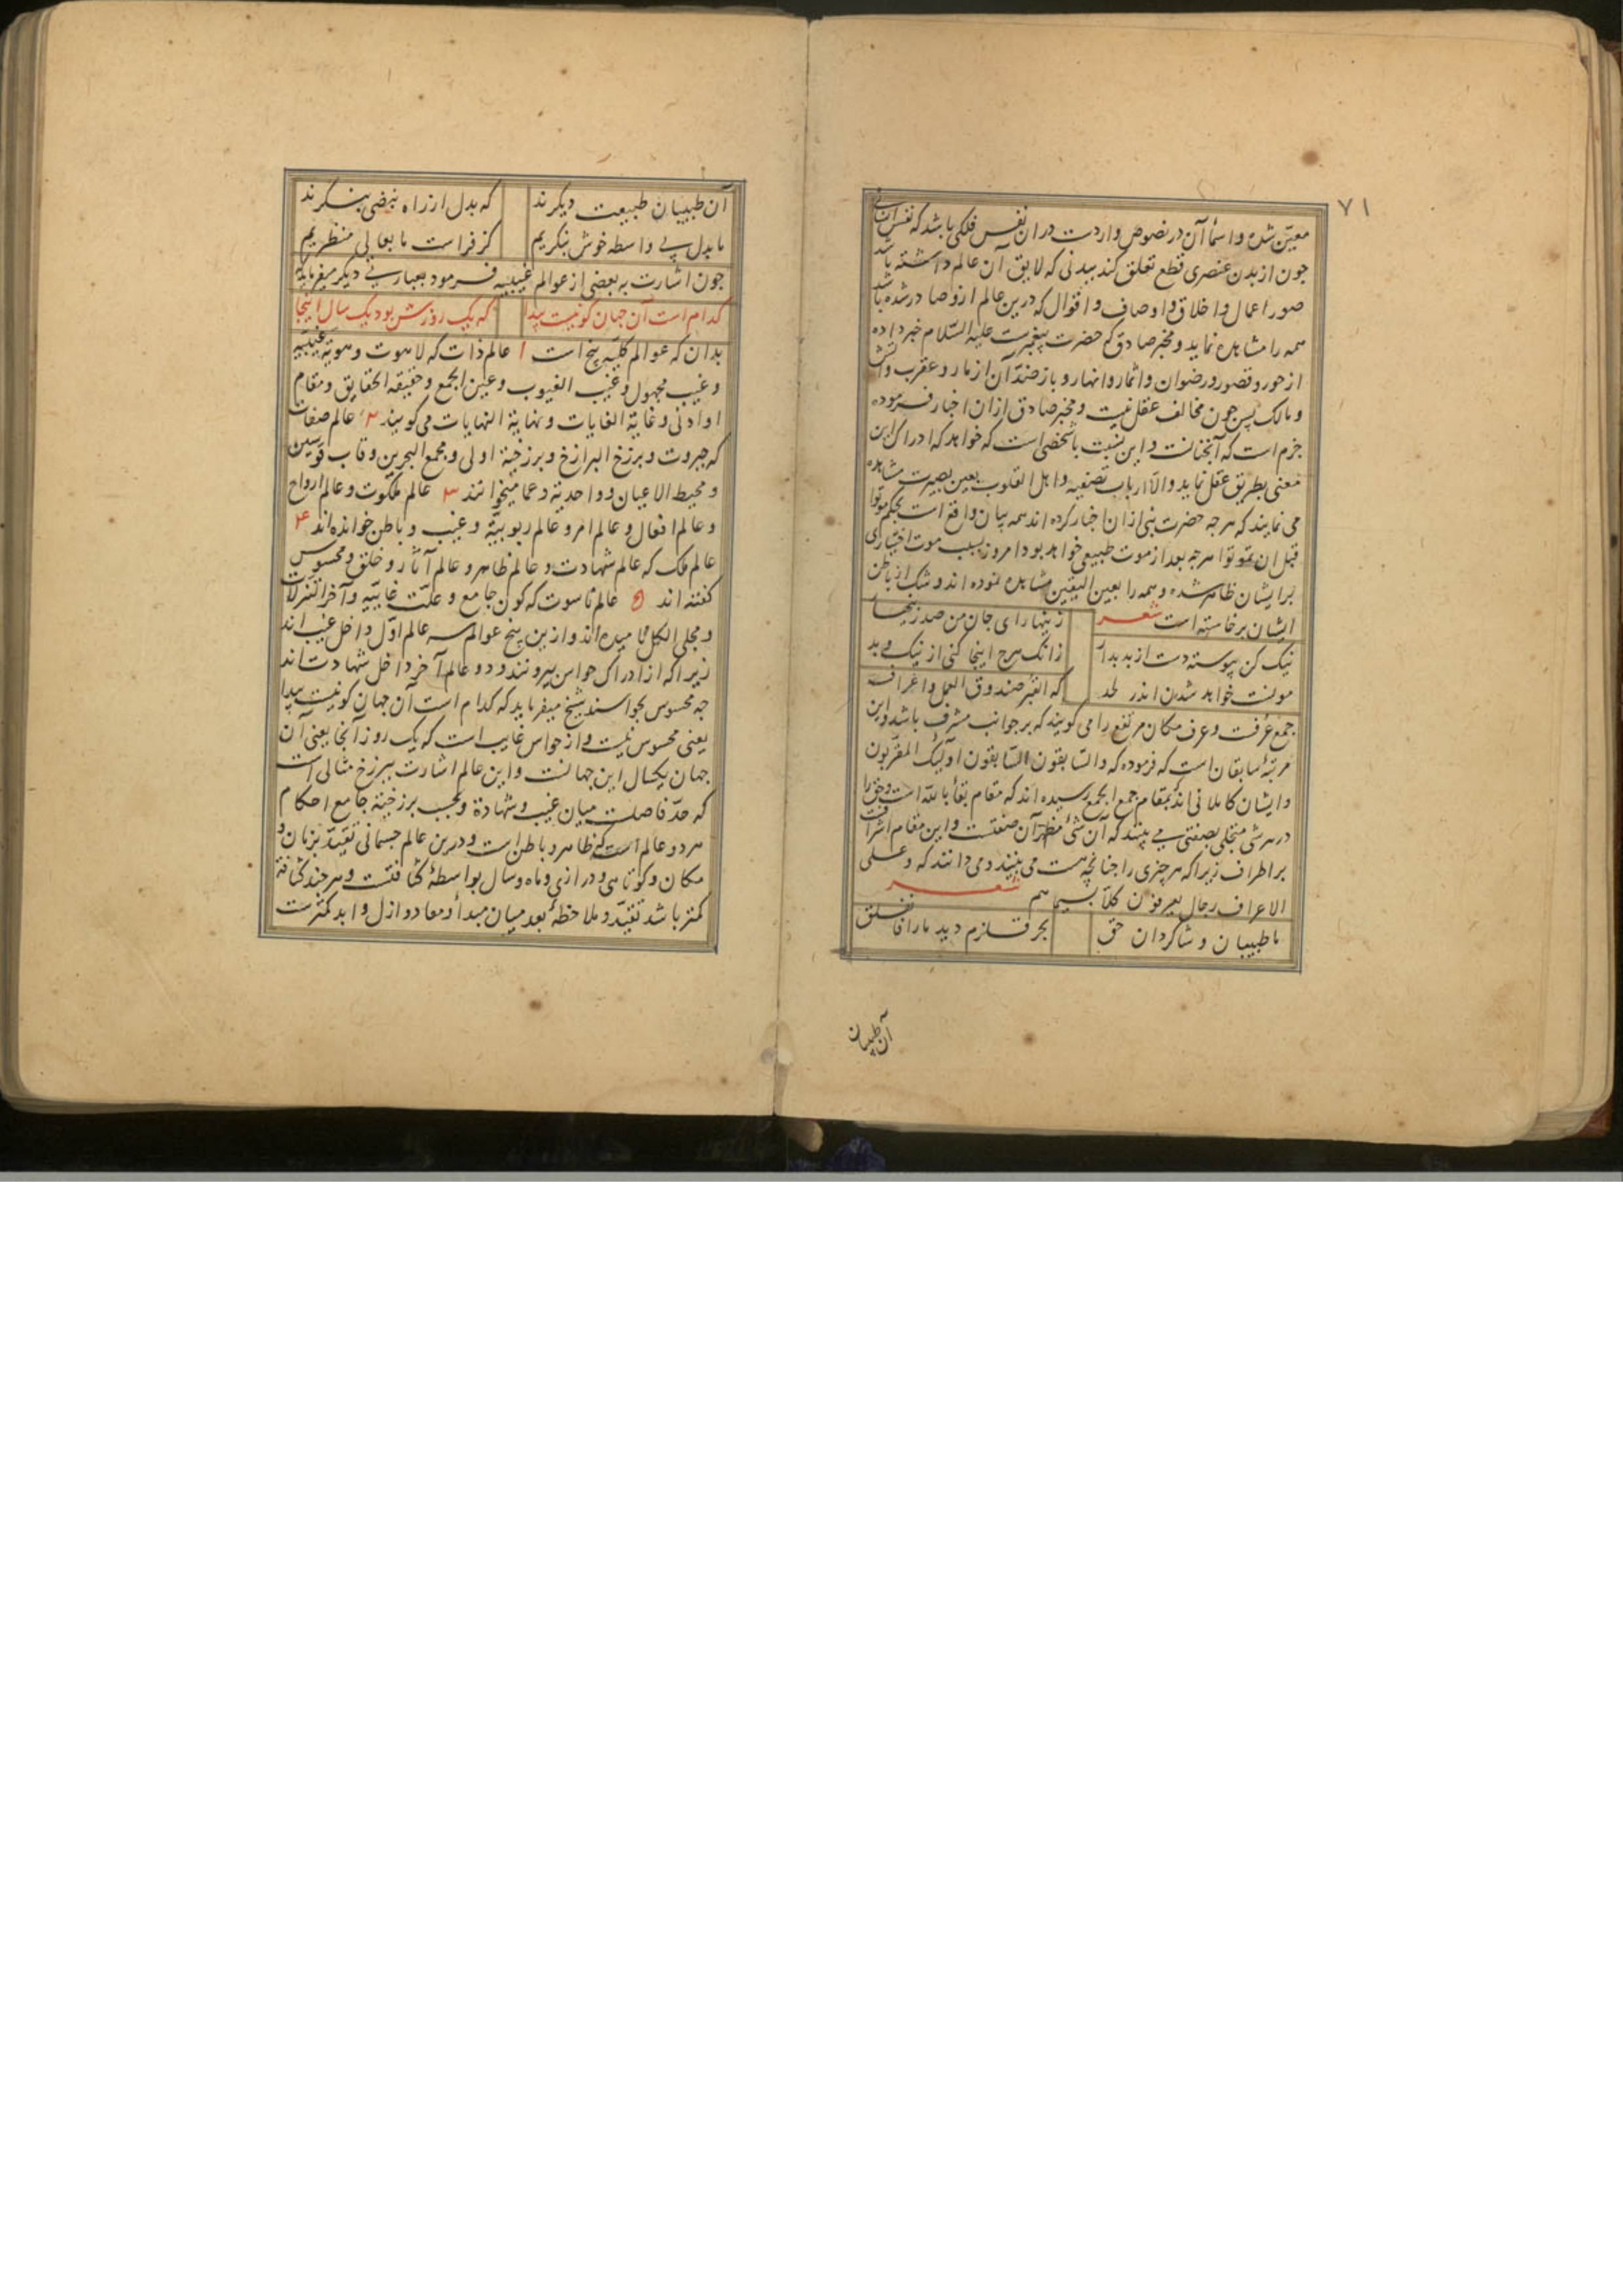 ۷۱
معین شده و اسمأ آن در نصوص واردست در ان نفس فلکی باشد که نفس انسانی
چون از بدن عنصری قطع تعلق کند ببدنی که لایق آن عالم داشته باشد
صور اعمال و اخلاق و اوصاف و اقوال که درین عالم ازو صادر شده باشد
همه را مشاهده نماید و مخبر صادق که حضرت پیغمبرست علیه السّلام خبر داده
از حور و قصور و رضوان و اثمار و انهار و باز ضدّ آن از مار و عقرب و آتش
و مالک پس چون مخالف عقل نیست و مخبر صادق ازان اخبار فرموده
جزم است که آنچنانست و این نسبت باشخصی است که خواهد که ادراک این
معنی بطریق عقل نماید والّا ارباب تصفیه و اهل القلوب بعین بصیرت مشاهده
می نمایند که هرچه حضرت نبی ازان اخبار کرده اند همه بیان واقع است بحکم موتوا
قبل ان تموتوا هرچه بعد از موت طبیعی خواهد بود امروز بسبب موت اختیاری
برایشان ظاهر شده و همه را بعین الیقین مشاهده نموده اند و شک از باطن
ایشان برخاسته است شعر زینهار ای جان من صد زینهار
نیک کن پیوسته دست از بد بدار زانک هرچ اینجا کنی از نیک و بد
مونست خواهد شدن اندر لحد که القبر صندوق العمل و اعراف
جمع عرفت و عرف مکان مرتفع را می گویند که بر جوانب مشرف باشد و این
مرتبهٔ سابقان است که فرموده که والسّابقون السّابقون اولئک المقرّبون
و ایشان کاملانی اند که بمقام جمع الجمع رسیده اند که مقام بقأ بالله است و حق را
در هر شی متجلی بصفتی می بینند که آن شئ مظهر آن صفتست و این مقام اشرافست
بر اطراف زیرا که هر چیزی را چنانچه هست می بینند و می دانند که و علی
الاعراف رجال یعرفون کلّا بسیماهم شعر
ما طبیبان و شاگردان حق بحر قلزم دید ما را فانفلق
آن طبیبان
آن طبیبان طبیعت دیگرند که بدل از راه نبضی بنگرند
ما بدل بی واسطه خوش بنگریم کز فراست ما بعالی منظریم
چون اشارت به بعضی از عوالم غیبیه فرمود بعبارتی دیگر میفرماید
کدام است آن جهان کو نیست پیدا که یک روزش بود یک سال اینجا
بدان که عوالم کلیّه پنج است ۱ عالم ذات که لاهوت و هویة غیبیه
و غیب مجهول و غیب الغیوب و عین الجمع و حقیقة الحقایق و مقام
او ادنی و غایة الغایات و نهایة النهایات می گویند ۲ عالم صفات
که جبروت و برزخ البرازخ و برزخیة اولی و مجمع البحرین و قاب قوسین
و محیط الاعیان و واحدیّة و عما میخوانند ۳ عالم ملکوت و عالم ارواح
و عالم افعال و عالم امر و عالم ربوبیّة و غیب و باطن خوانده اند ۴
عالم ملک که عالم شهادت و عالم ظاهر و عالم آثار و خلق و محسوس
گفته اند ۵ عالم ناسوت که کون جامع و علّت غائیّه و آخر التنزلات
و مجلی الکل نامیده اند و ازین پنج عوالم سه عالم اوّل داخل غیب اند
زیرا که از ادراک حواس بیرونند و دو عالم آخر داخل شهادت اند
چه محسوس بحواسند شیخ میفرماید که کدام است آن جهان کو نیست پیدا
یعنی محسوس نیست و از حواس غایب است که یک روز آنجا یعنی آن
جهان یکسال این جهانست و این عالم اشارت ببرزخ مثالی است
که حدّ فاصلست میان غیب و شهادة و بحسب برزخیّة جامع احکام
هر دو عالم است که ظاهر و باطن است و درین عالم جسمانی تقیّد بزمان و
مکان و کوتاهی و درازی و ماه و سال بواسطهٔ کثافتست و هرچند کثافة
کمتر باشد تقیّد و ملاحظهٔ بعد میان مبدأ و معاد و ازل و ابد کمترست